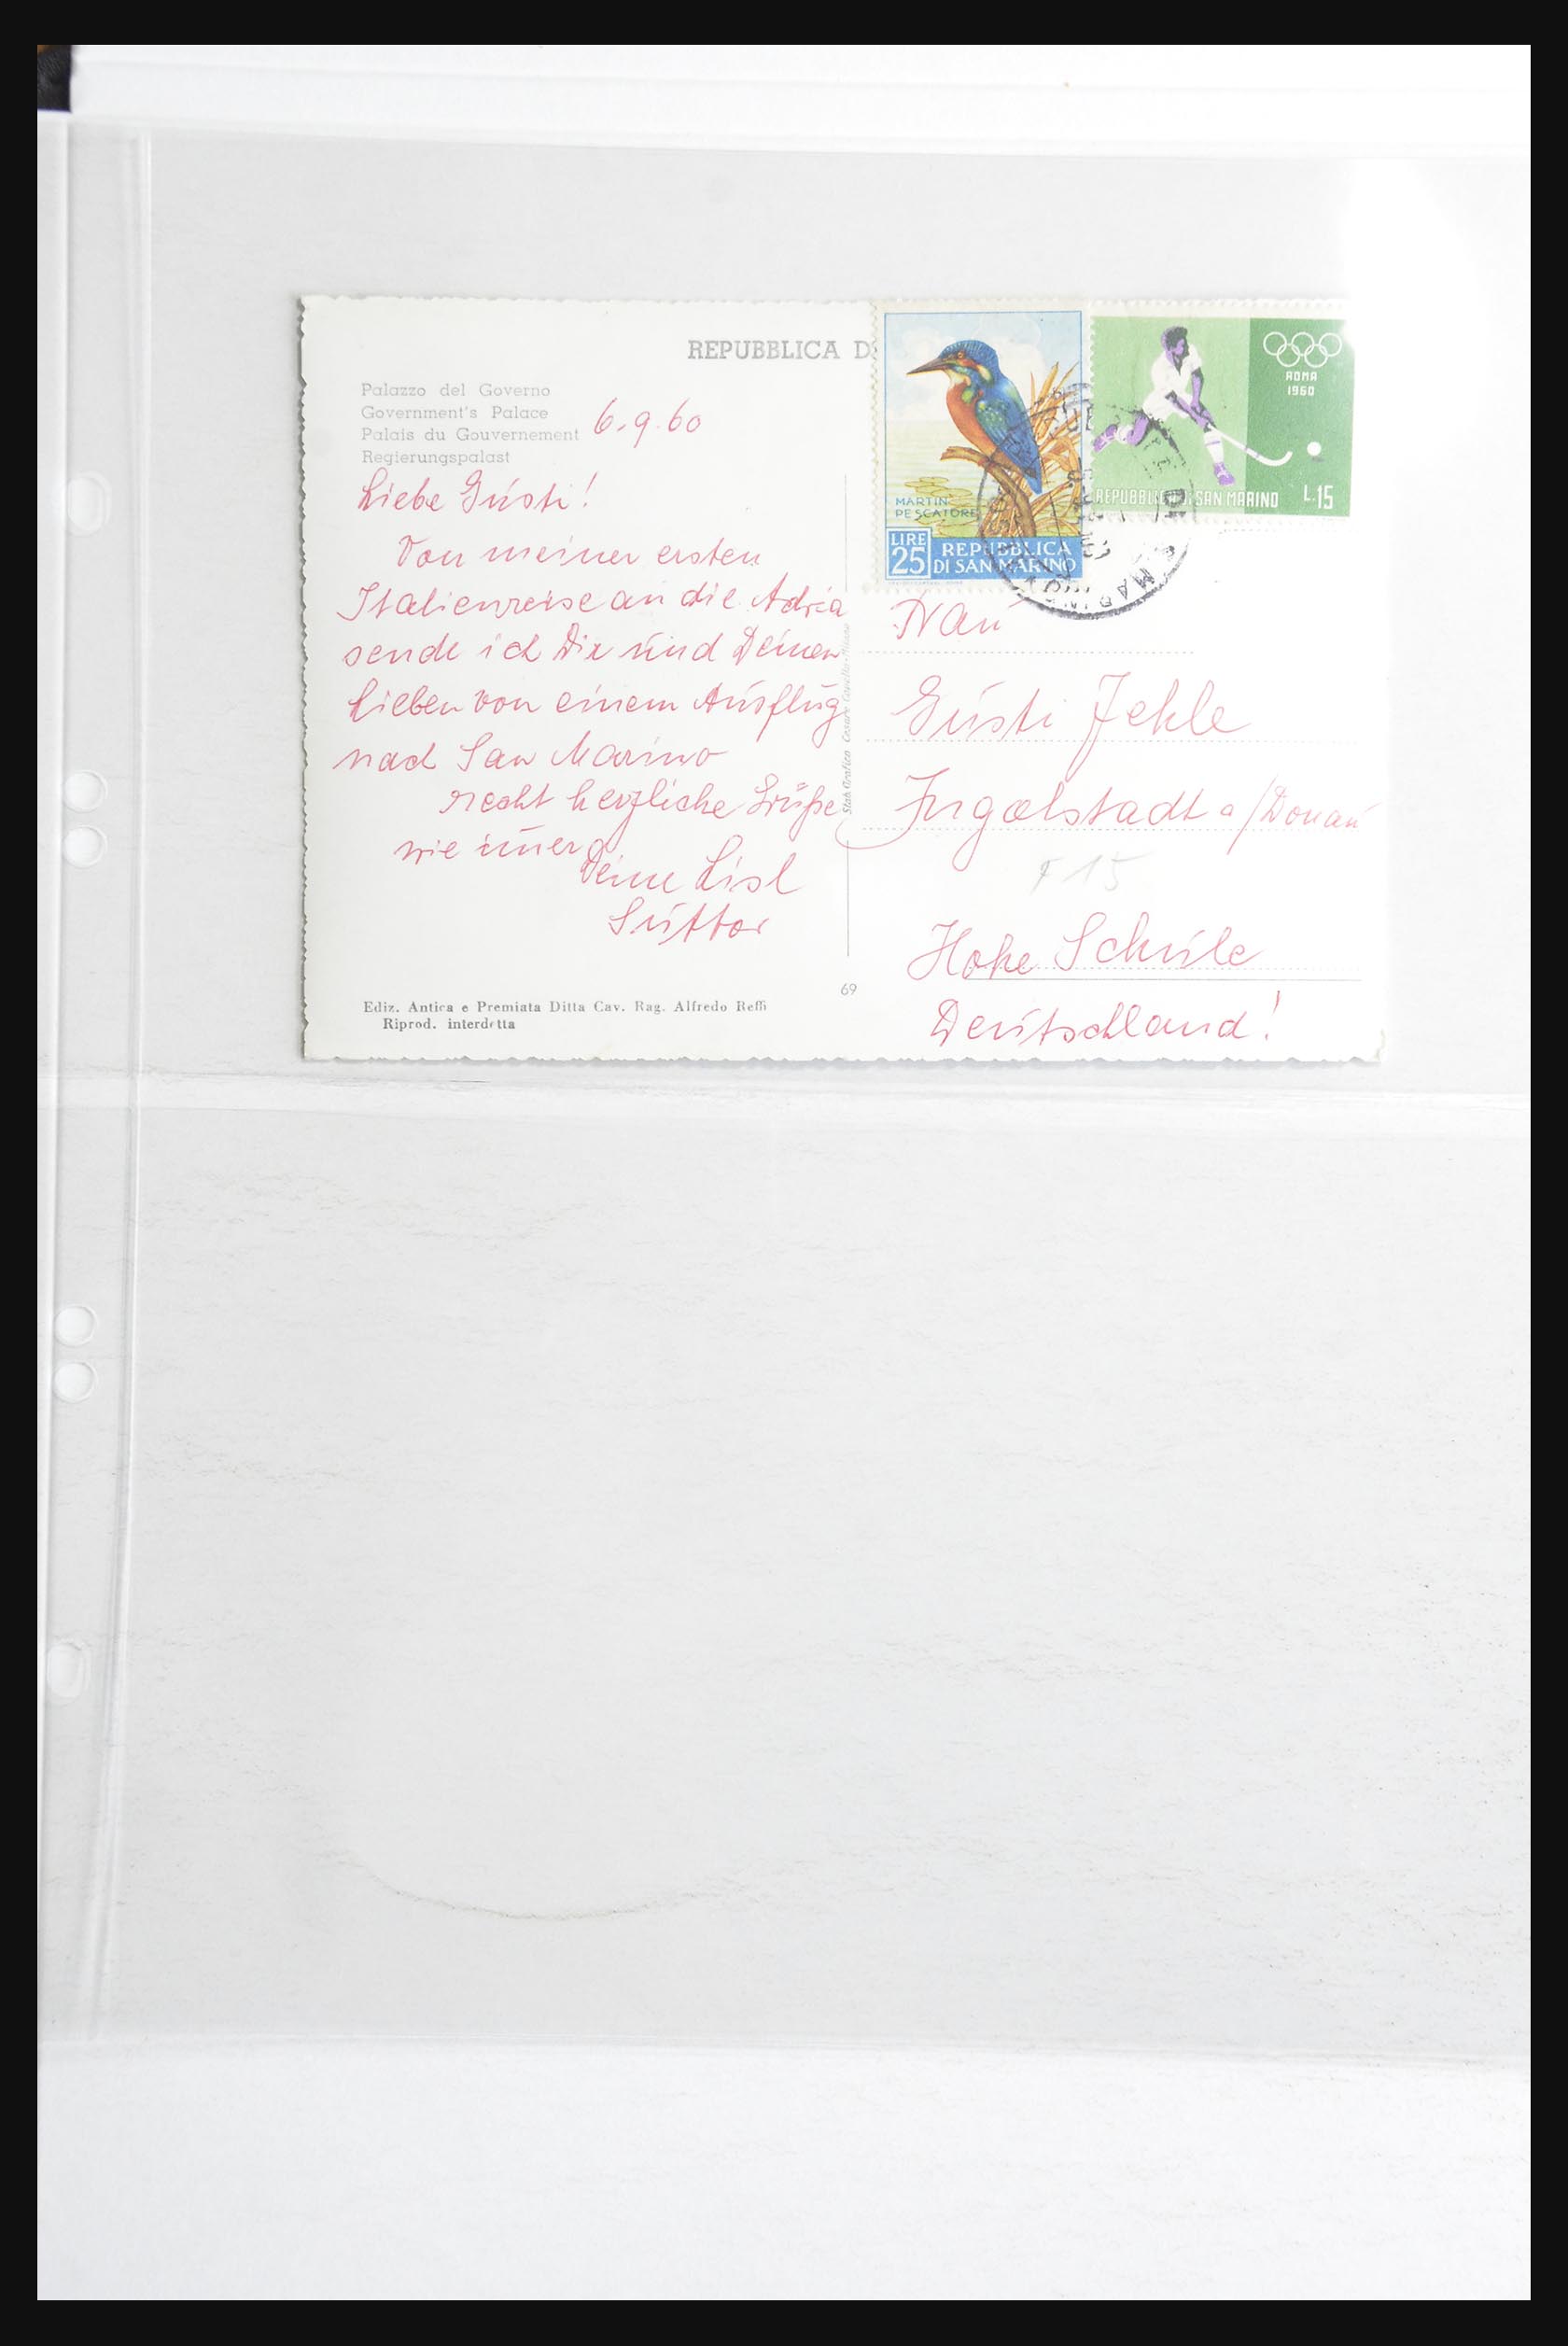 REPUBBLICA D
Palazzo del Governo
Government's Palace
Palais du Gouvernement
Regierungspalast
6.9.60
Liebe Gusti!
Von meiner ersten
Italienreise an die Adria
sende ich Dir und Deinen
Lieben von einem Ausflug
nach San Marino
recht herzliche Grüße
wie immer
Deine Lisl
Suttor
Ediz. Antica e Premiata Ditta Cav. Rag. Alfredo Reffi
Riprod. interdetta
69
MARTIN
PESCATORE
LIRE
25
REPUBBLICA
DI SAN MARINO
ROMA
1960
REPUBBLICA DI SAN MARINO L.15
Frau
Gusti Jekle
Ingolstadt a/Donau
F 15
Hohe Schule
Deutschland!